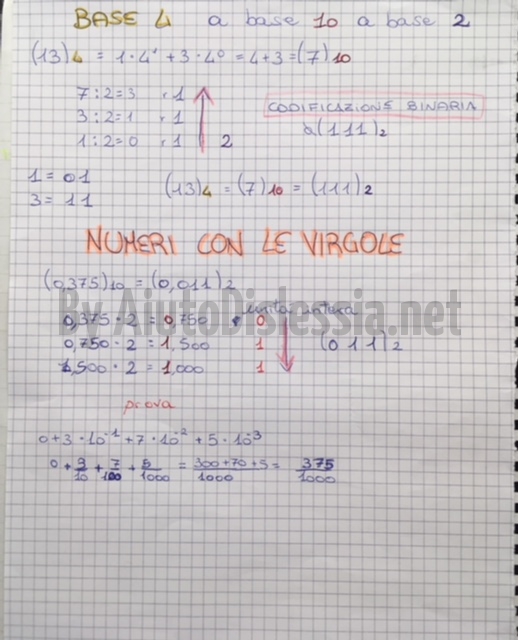 BASE 4 a base 10 a base 2
(13)4 = 1·4¹ + 3·4⁰ = 4+3 = (7)10
7:2=3 r1
3:2=1 r1
1:2=0 r1 2
CODIFICAZIONE BINARIA
a(111)2
1 = 01
3 = 11
(13)4 = (7)10 = (111)2
NUMERI CON LE VIRGOLE
(0,375)10 = (0,011)2
By AiutoDislessia.net
unità intera
0,375 · 2 = 0,750 0
0,750 · 2 = 1,500 1 (011)2
1,500 · 2 = 1,000 1
prova
0+3·10⁻¹+7·10⁻²+5·10⁻³
0 + 3/10 + 7/100 + 5/1000 = 300+70+5/1000 = 375/1000